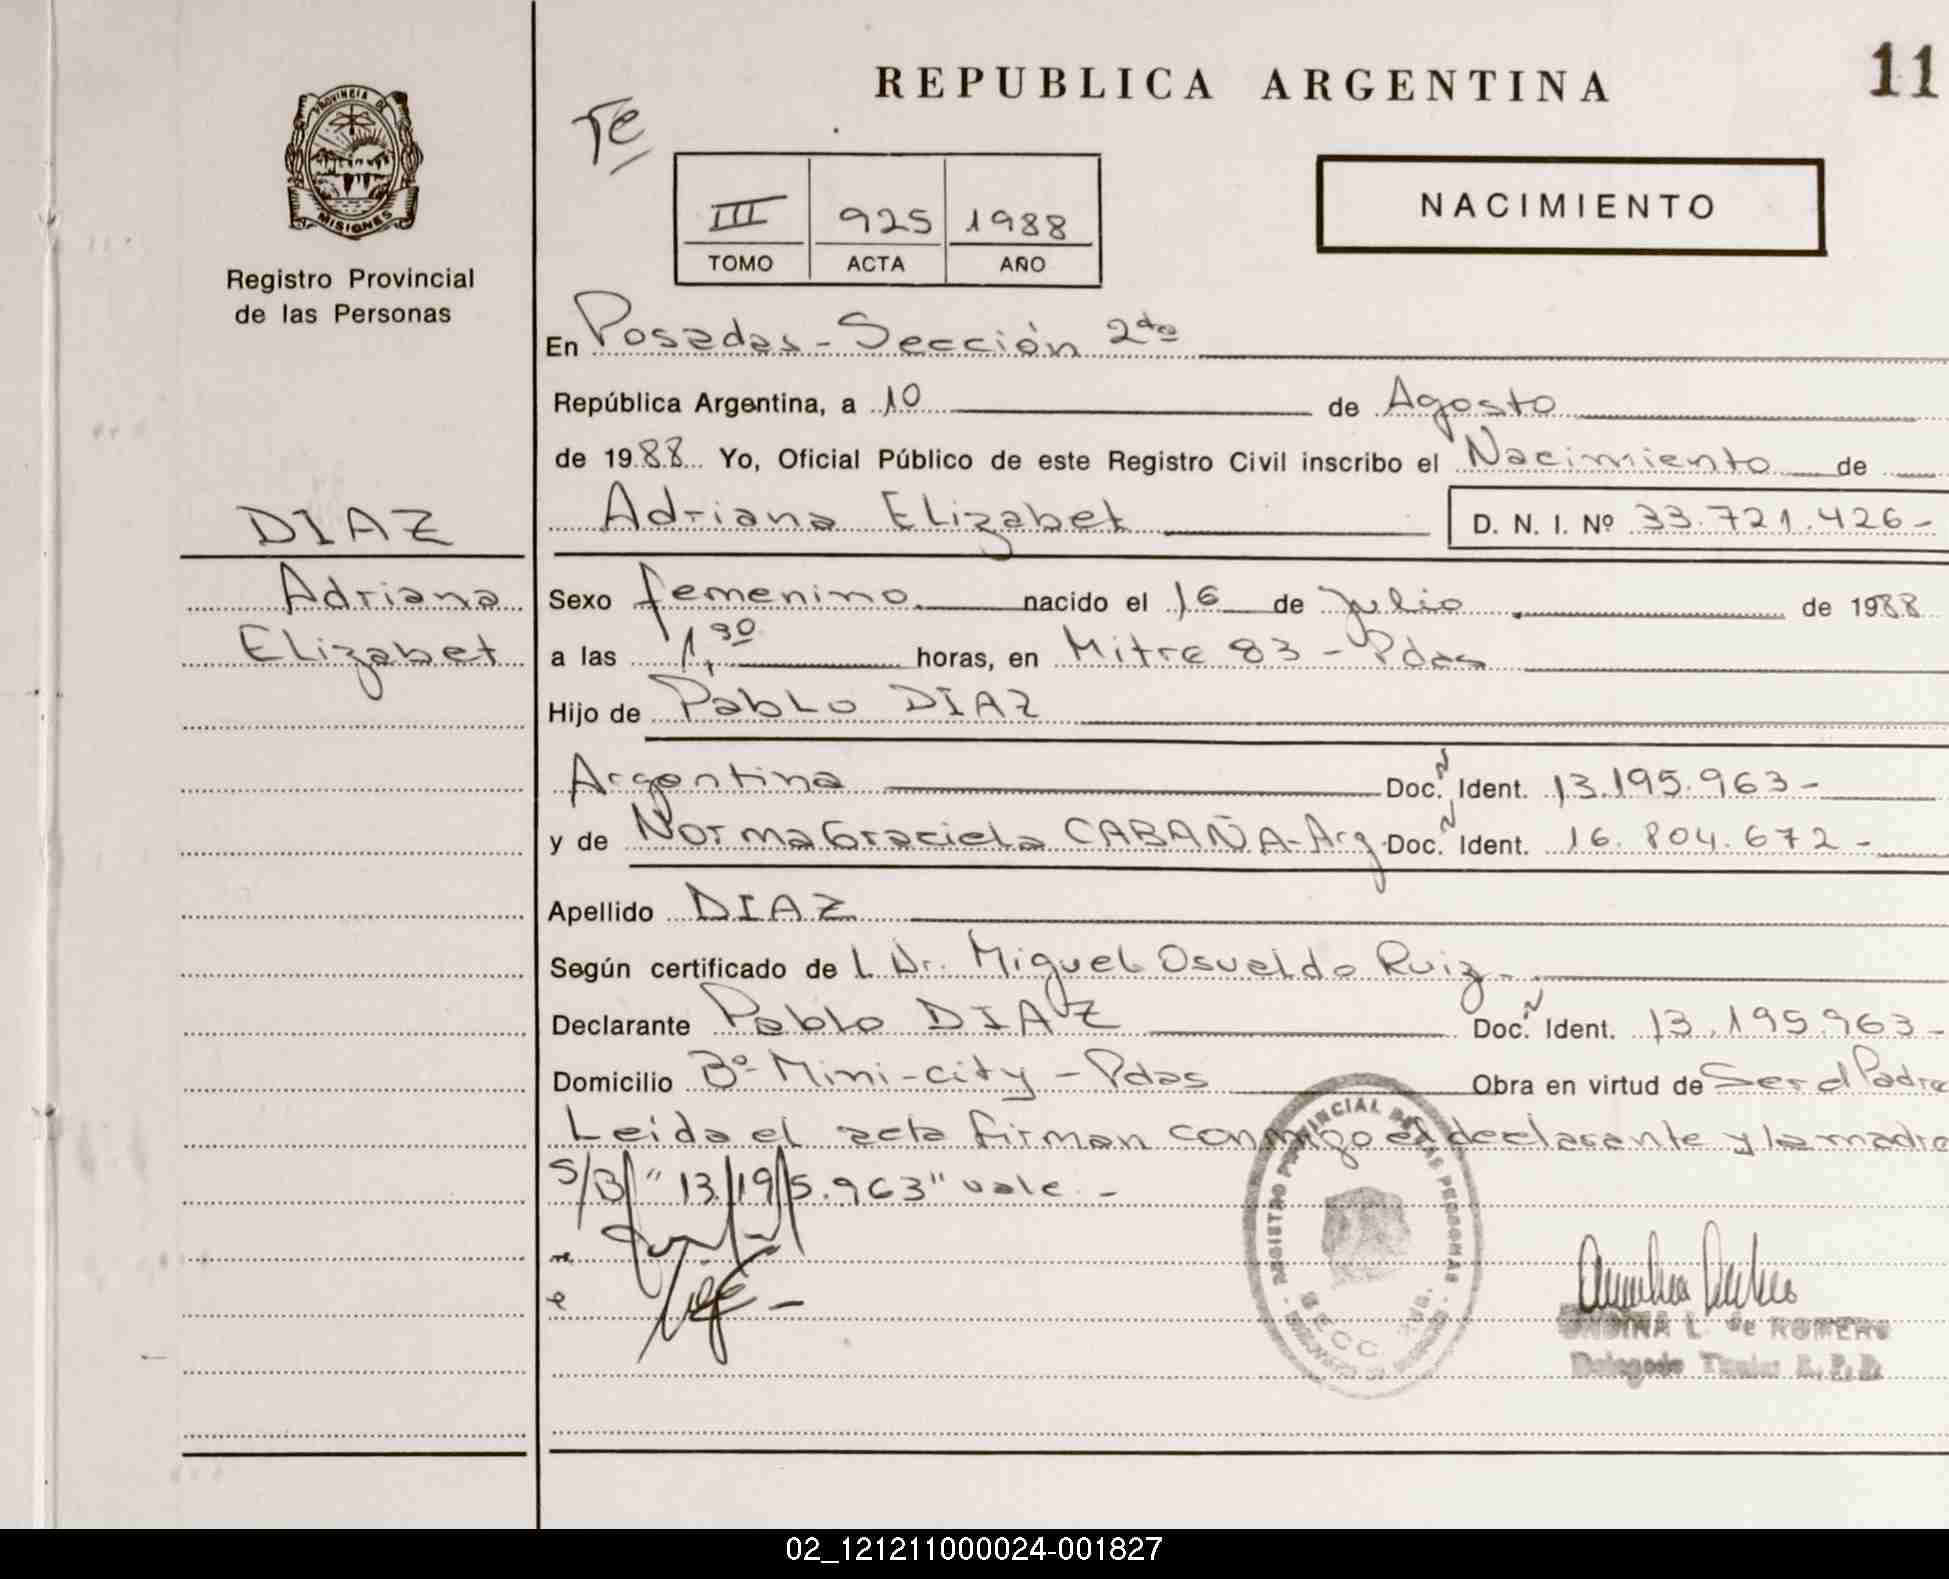 REPUBLICA ARGENTINA
11
PROVINCIA DE
MISIONES
Registro Provincial
de las Personas
Te
III 925 1988
TOMO ACTA AÑO
NACIMIENTO
En Posadas - Sección 2da
República Argentina, a 10 de Agosto
de 1988 Yo, Oficial Público de este Registro Civil inscribo el Nacimiento de
DIAZ
Adriana Elizabet D. N. I. Nº 33.721.426-
Adriana
Elizabet
Sexo femenino nacido el 16 de Julio de 1988
a las 1,30 horas, en Mitre 83 - Pdas
Hijo de Pablo DIAZ
Argentina Doc. Ident. 13.195.963-
y de Norma Graciela CABAÑA-Arg Doc. Ident. 16.804.672-
Apellido DIAZ
Según certificado de L Dr. Miguel Osvaldo Ruiz-
Declarante Pablo DIAZ Doc. Ident. 13.195.963-
Domicilio Bº Mini-city - Pdas Obra en virtud de Ser el Padre
Leida el acta firman conmigo el declarante y la madre
S/B/ "13.195.963" vale -
REGISTRO PROVINCIAL DE LAS PERSONAS
SECC. 2da.
L. de ROMERO
Delegado Titular R.P.P.
02_121211000024-001827